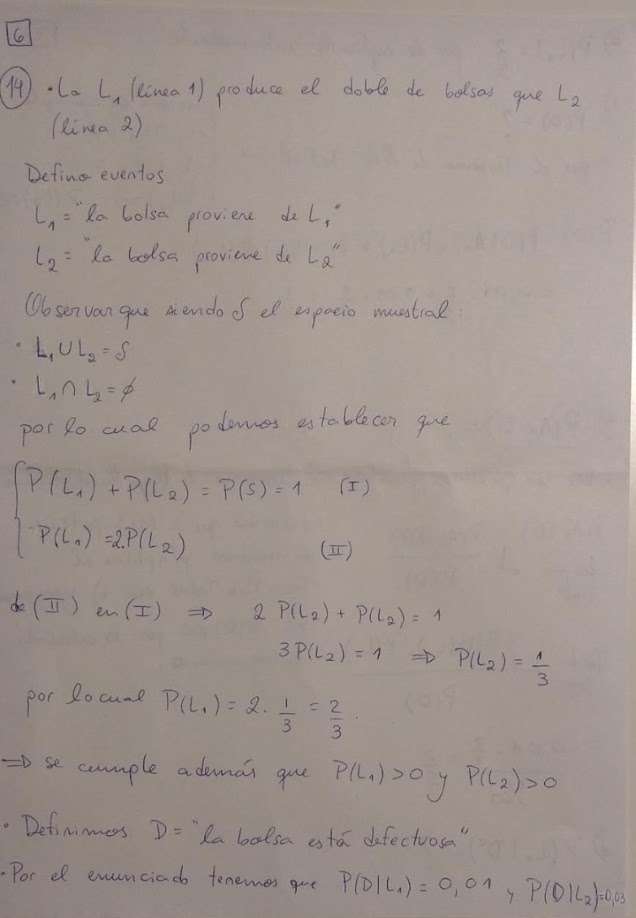 6
14 • La L₁ (línea 1) produce el doble de bolsas que L₂
(línea 2)
Defino eventos
L₁ = "la bolsa proviene de L₁"
L₂ = "la bolsa proviene de L₂"
Observar que siendo S el espacio muestral:
• L₁ ∪ L₂ = S
• L₁ ∩ L₂ = ∅
por lo cual podemos establecer que
P(L₁) + P(L₂) = P(S) = 1 (I)
P(L₁) = 2.P(L₂) (II)
de (II) en (I) ⇒ 2 P(L₂) + P(L₂) = 1
3P(L₂) = 1 ⇒ P(L₂) = 1/3
por lo cual P(L₁) = 2. 1/3 = 2/3.
⇒ se cumple además que P(L₁) > 0 y P(L₂) > 0
• Definimos D = "la bolsa está defectuosa"
• Por el enunciado tenemos que P(D|L₁) = 0,01 y P(D|L₂) = 0,03